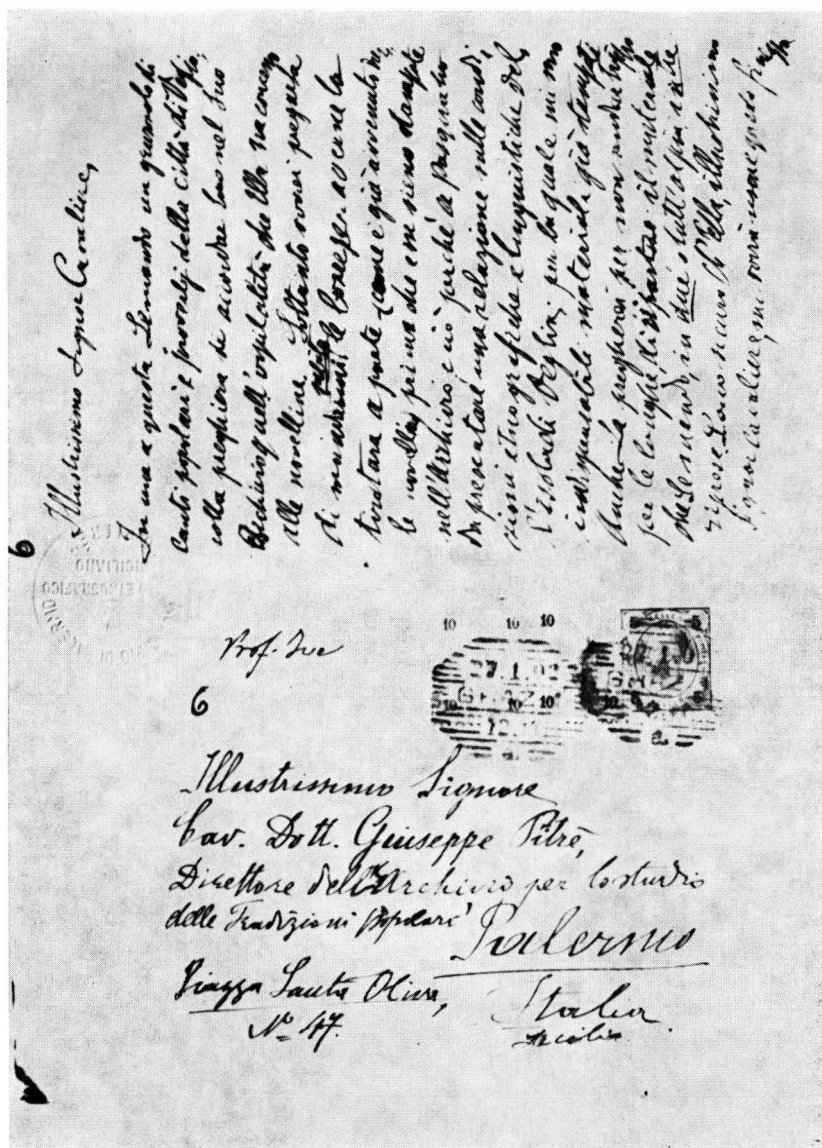 6
Illustrissimo Signor Cavaliere,
In una a questa Le mando un gruzzolo di
Canti popolari e proverbj della città di Veglia,
colla preghiera di accordar loro nel Suo
Archivio quell'ospitalità che Ella ha concesso
alle novelline. Soltanto vorrei pregarla
di le bozze, siccome la
tiratura a parte come è già avvenuto
le novelle, prima che esse sieno stampate
nell'Archivio e ciò perchè a Pasqua ho
da presentare una relazione sulle condi-
zioni etnografiche e linguistiche del-
l'isola di Veglia, per la quale mi
indispensabile materiale già stampato
Anche La pregherei per non andar
per le lunghe di il materiale
che Le mando, in due o tutt'al più in tre
riprese. Sono sicuro ch'Ella, illustrissimo
Signor Cavaliere, mi vorrà usare questo
Prof. Ive
6
10 10 10
5 5
10 10 10
Illustrissimo Signore
Cav. Dott. Giuseppe Pitrè,
Direttore dell'Archivio per lo studio
delle Tradizioni Popolari
Palermo
Piazza Santa Oliva,
Nº 47.
Italia
Sicilia